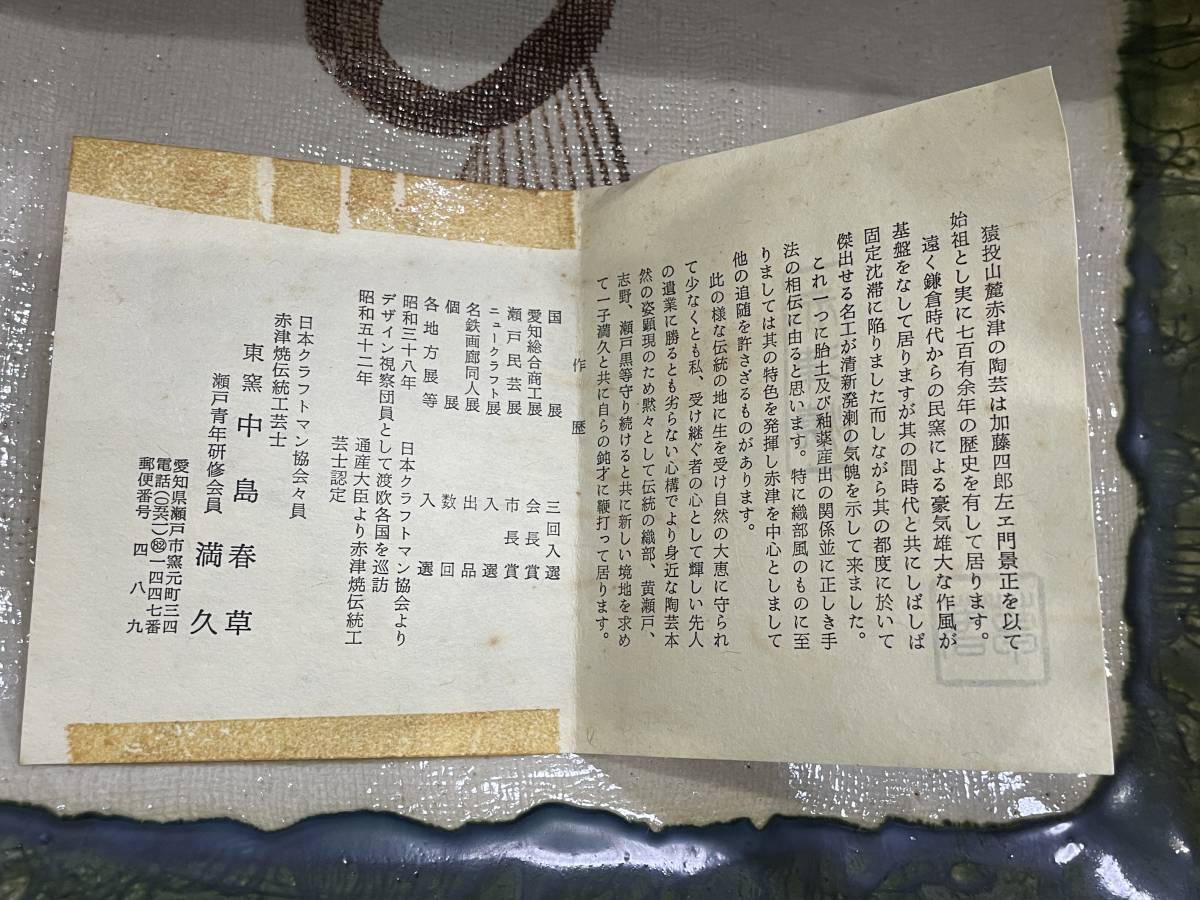 猿投山麓赤津の陶芸は加藤四郎左ヱ門景正を以て
始祖とし実に七百有余年の歴史を有して居ります。
遠く鎌倉時代からの民窯による豪気雄大な作風が
基盤をなして居りますが其の間時代と共にしばしば
固定沈滞に陥りました而しながら其の都度に於いて
傑出せる名工が清新溌溂の気魄を示して来ました。
これ一つに胎土及び釉薬産出の関係並に正しき手
法の相伝に由ると思います。特に織部風のものに至
りましては其の特色を発揮し赤津を中心としまして
他の追随を許さざるものがあります。
此の様な伝統の地に生を受け自然の大恵に守られ
て少なくとも私、受け継ぐ者の心として輝しい先人
の遺業に勝るとも劣らない心構でより身近な陶芸本
然の姿顕現のため黙々として伝統の織部、黄瀬戸、
志野、瀬戸黒等守り続けると共に新しい境地を求め
て一子満久と共に自らの鈍才に鞭打って居ります。
作歴
国展 三回入選
愛知総合商工展 会長賞
瀬戸民芸展 市長賞
ニュークラフト展 入選
名鉄画廊同人展 出品
個展 数回
各地方展等 入選
昭和三十八年 日本クラフトマン協会より
デザイン視察団員として渡欧各国を巡訪
昭和五十二年 通産大臣より赤津焼伝統工
芸士認定
日本クラフトマン協会々員
赤津焼伝統工芸士
東窯 中島春草
瀬戸青年研修会員
満久
愛知県瀬戸市窯元町三四
電話(〇五六一)㊇一四四七番
郵便番号 四八九